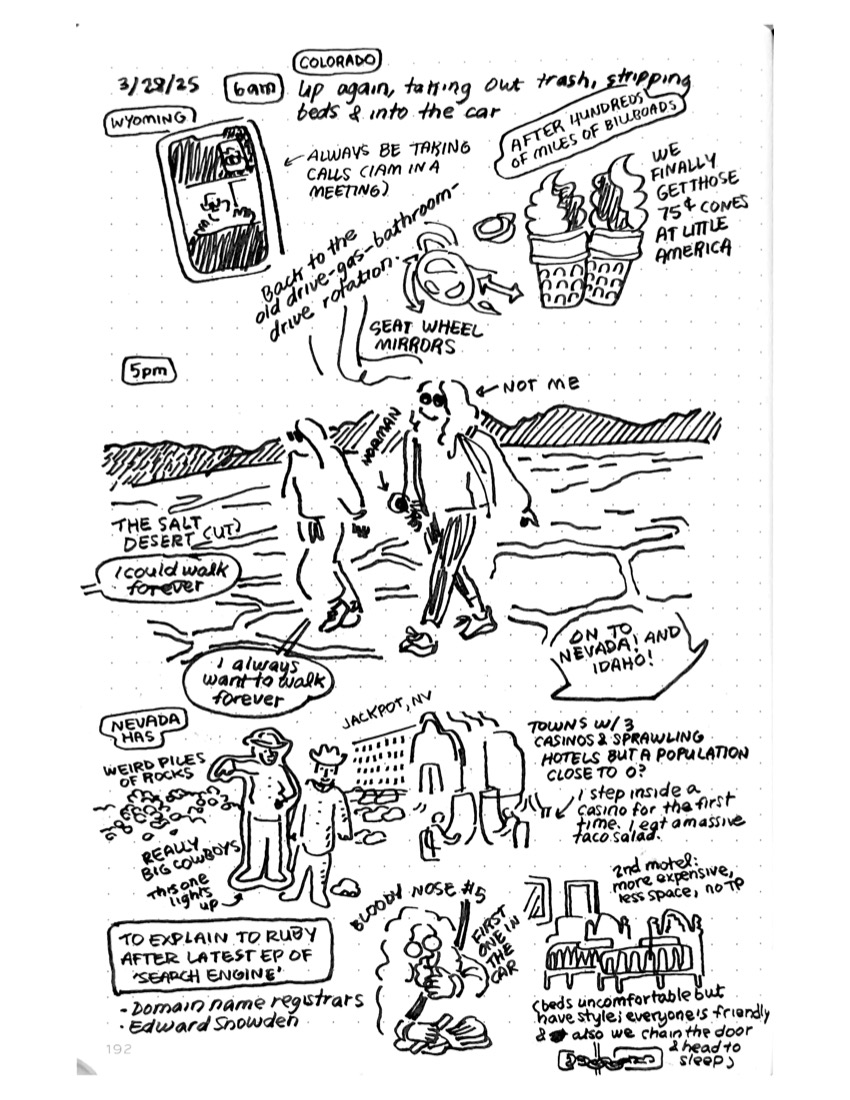 COLORADO
3/28/25 6am Up again, taking out trash, stripping
beds & into the car
WYOMING
ALWAYS BE TAKING
CALLS (IAM IN A
MEETING)
AFTER HUNDREDS
OF MILES OF BILLBOADS
WE
FINALLY
GET THOSE
75¢ CONES
AT LITTLE
AMERICA
Back to the
old drive-gas-bathroom-
drive rotation.
SEAT WHEEL
MIRRORS
5pm
NOT ME
NORMAN
THE SALT
DESERT (UT)
I could walk
forever
I always
want to walk
forever
ON TO
NEVADA! AND
IDAHO!
NEVADA
HAS
WEIRD PILES
OF ROCKS
REALLY
BIG COWBOYS
This one
lights
up
JACKPOT, NV
TOWNS W/ 3
CASINOS & SPRAWLING
HOTELS BUT A POPULATION
CLOSE TO 0?
I step inside a
casino for the first
time. I eat a massive
taco salad.
TO EXPLAIN TO RUBY
AFTER LATEST EP OF
'SEARCH ENGINE'
- Domain name registrars
- Edward Snowden
BLOODY NOSE #5
FIRST
ONE IN
THE
CAR
2nd motel:
more expensive,
less space, no TP
(beds uncomfortable but
have style; everyone is friendly
& also we chain the door
& head to
sleep)
192